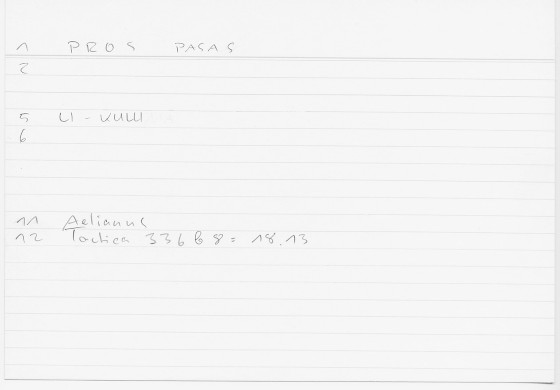 1 PROS PASAS
2
5 LI - VLIII
6
11 Aelianus
12 Tactica 336 b 8 = 18.13